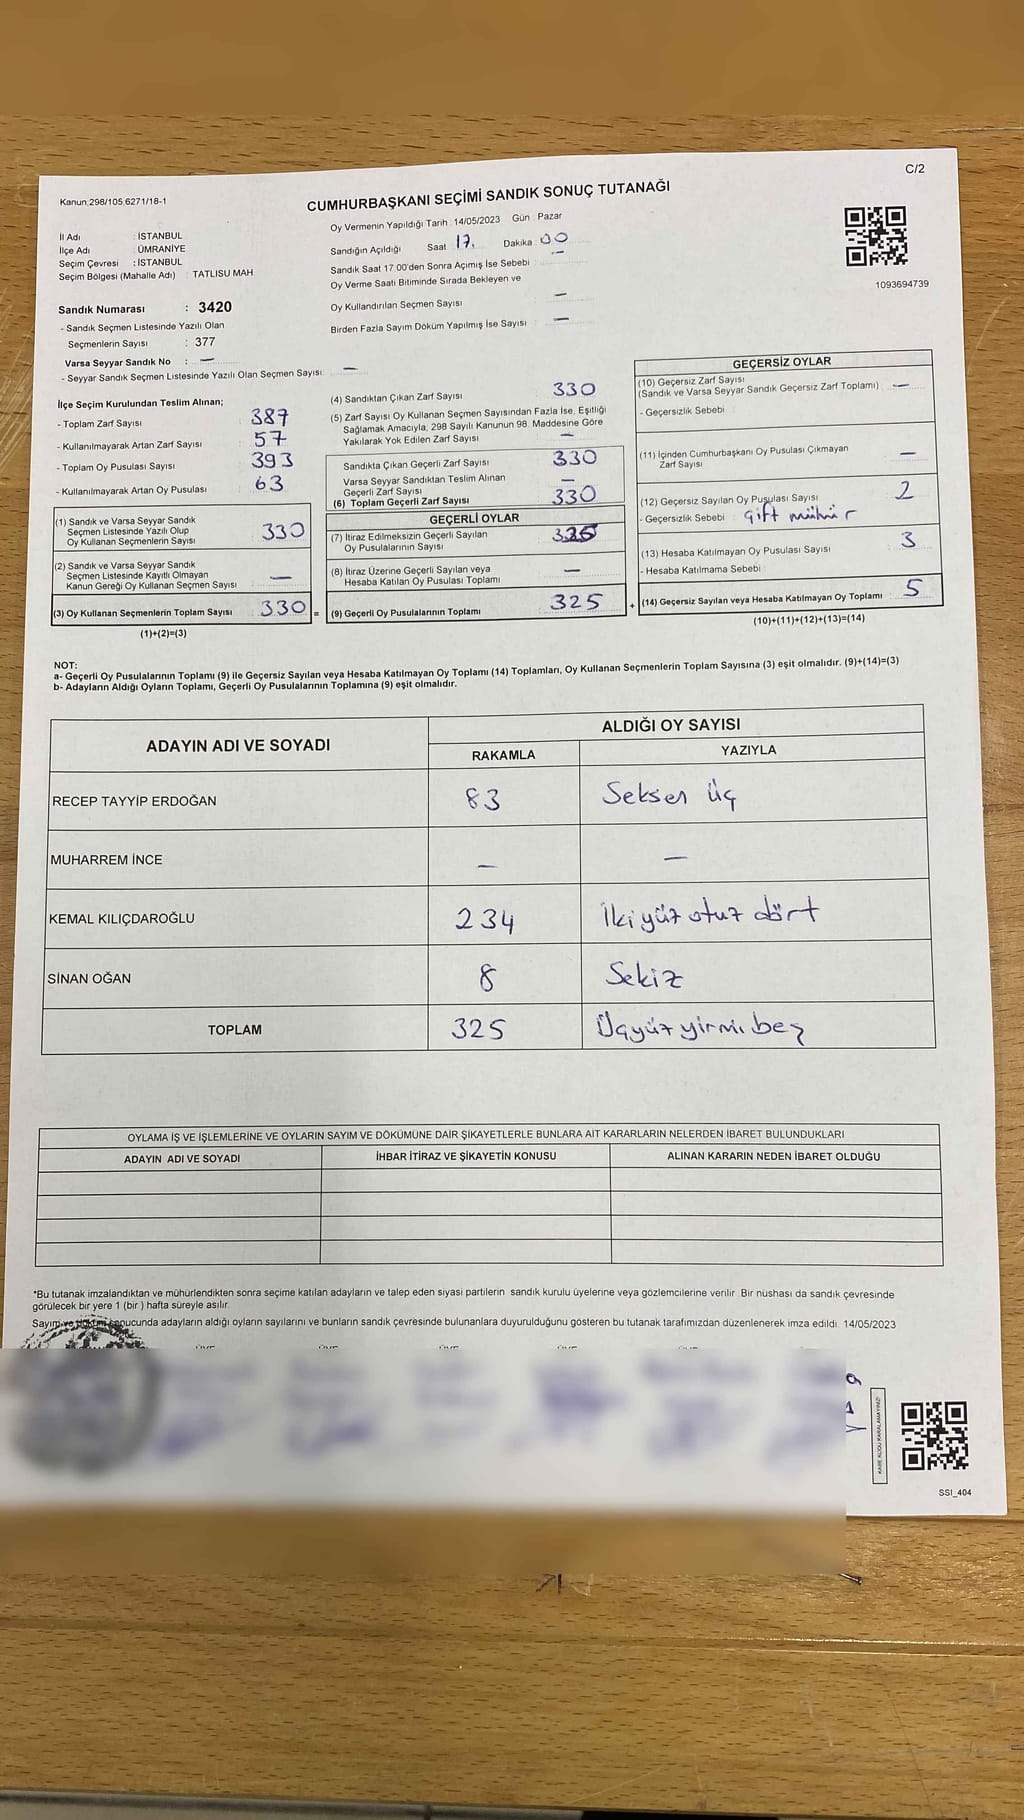 C/2
Kanun:298/105,6271/18-1
CUMHURBAŞKANI SEÇİMİ SANDIK SONUÇ TUTANAĞI
İl Adı : İSTANBUL
İlçe Adı : ÜMRANİYE
Seçim Çevresi : İSTANBUL
Seçim Bölgesi (Mahalle Adı) : TATLISU MAH
Oy Vermenin Yapıldığı Tarih : 14/05/2023 Gün : Pazar
Sandığın Açıldığı Saat : 17. Dakika : 00
Sandık Saat 17.00'den Sonra Açımış İse Sebebi : —
Oy Verme Saati Bitiminde Sırada Bekleyen ve
Oy Kullandırılan Seçmen Sayısı : —
Birden Fazla Sayım Döküm Yapılmış İse Sayısı : —
1093694739
Sandık Numarası : 3420
- Sandık Seçmen Listesinde Yazılı Olan
Seçmenlerin Sayısı : 377
Varsa Seyyar Sandık No : —
- Seyyar Sandık Seçmen Listesinde Yazılı Olan Seçmen Sayısı: —
İlçe Seçim Kurulundan Teslim Alınan;
- Toplam Zarf Sayısı : 387
- Kullanılmayarak Artan Zarf Sayısı : 57
- Toplam Oy Pusulası Sayısı : 393
- Kullanılmayarak Artan Oy Pusulası : 63
(1) Sandık ve Varsa Seyyar Sandık
Seçmen Listesinde Yazılı Olup
Oy Kullanan Seçmenlerin Sayısı : 330
(2) Sandık ve Varsa Seyyar Sandık
Seçmen Listesinde Kayıtlı Olmayan
Kanun Gereği Oy Kullanan Seçmen Sayısı : —
(3) Oy Kullanan Seçmenlerin Toplam Sayısı : 330 =
(1)+(2)=(3)
(4) Sandıktan Çıkan Zarf Sayısı : 330
(5) Zarf Sayısı Oy Kullanan Seçmen Sayısından Fazla İse, Eşitliği
Sağlamak Amacıyla, 298 Sayılı Kanunun 98. Maddesine Göre
Yakılarak Yok Edilen Zarf Sayısı : —
Sandıkta Çıkan Geçerli Zarf Sayısı : 330
Varsa Seyyar Sandıktan Teslim Alınan
Geçerli Zarf Sayısı : —
(6) Toplam Geçerli Zarf Sayısı : 330
GEÇERLİ OYLAR
(7) İtiraz Edilmeksizin Geçerli Sayılan
Oy Pusulalarının Sayısı : 325
(8) İtiraz Üzerine Geçerli Sayılan veya
Hesaba Katılan Oy Pusulası Toplamı : —
(9) Geçerli Oy Pusulalarının Toplamı : 325 +
GEÇERSİZ OYLAR
(10) Geçersiz Zarf Sayısı
(Sandık ve Varsa Seyyar Sandık Geçersiz Zarf Toplamı) : —
- Geçersizlik Sebebi :
(11) İçinden Cumhurbaşkanı Oy Pusulası Çıkmayan
Zarf Sayısı : —
(12) Geçersiz Sayılan Oy Pusulası Sayısı : 2
- Geçersizlik Sebebi : Çift mühür
(13) Hesaba Katılmayan Oy Pusulası Sayısı : 3
- Hesaba Katılmama Sebebi :
(14) Geçersiz Sayılan veya Hesaba Katılmayan Oy Toplamı : 5
(10)+(11)+(12)+(13)=(14)
NOT:
a- Geçerli Oy Pusulalarının Toplamı (9) ile Geçersiz Sayılan veya Hesaba Katılmayan Oy Toplamı (14) Toplamları, Oy Kullanan Seçmenlerin Toplam Sayısına (3) eşit olmalıdır. (9)+(14)=(3)
b- Adayların Aldığı Oyların Toplamı, Geçerli Oy Pusulalarının Toplamına (9) eşit olmalıdır.
ADAYIN ADI VE SOYADI
ALDIĞI OY SAYISI
RAKAMLA YAZIYLA
RECEP TAYYİP ERDOĞAN 83 Seksen Üç
MUHARREM İNCE — —
KEMAL KILIÇDAROĞLU 234 İkiyüz otuz dört
SİNAN OĞAN 8 Sekiz
TOPLAM 325 Üçyüz yirmi beş
OYLAMA İŞ VE İŞLEMLERİNE VE OYLARIN SAYIM VE DÖKÜMÜNE DAİR ŞİKAYETLERLE BUNLARA AİT KARARLARIN NELERDEN İBARET BULUNDUKLARI
ADAYIN ADI VE SOYADI İHBAR İTİRAZ VE ŞİKAYETİN KONUSU ALINAN KARARIN NEDEN İBARET OLDUĞU
*Bu tutanak imzalandıktan ve mühürlendikten sonra seçime katılan adayların ve talep eden siyasi partilerin sandık kurulu üyelerine veya gözlemcilerine verilir. Bir nüshası da sandık çevresinde
görülecek bir yere 1 (bir ) hafta süreyle asılır.
Sayım ve döküm sonucunda adayların aldığı oyların sayılarını ve bunların sandık çevresinde bulunanlara duyurulduğunu gösteren bu tutanak tarafımızdan düzenlenerek imza edildi. 14/05/2023
KARE KODU KARALAMAYINIZ!
SSI_404